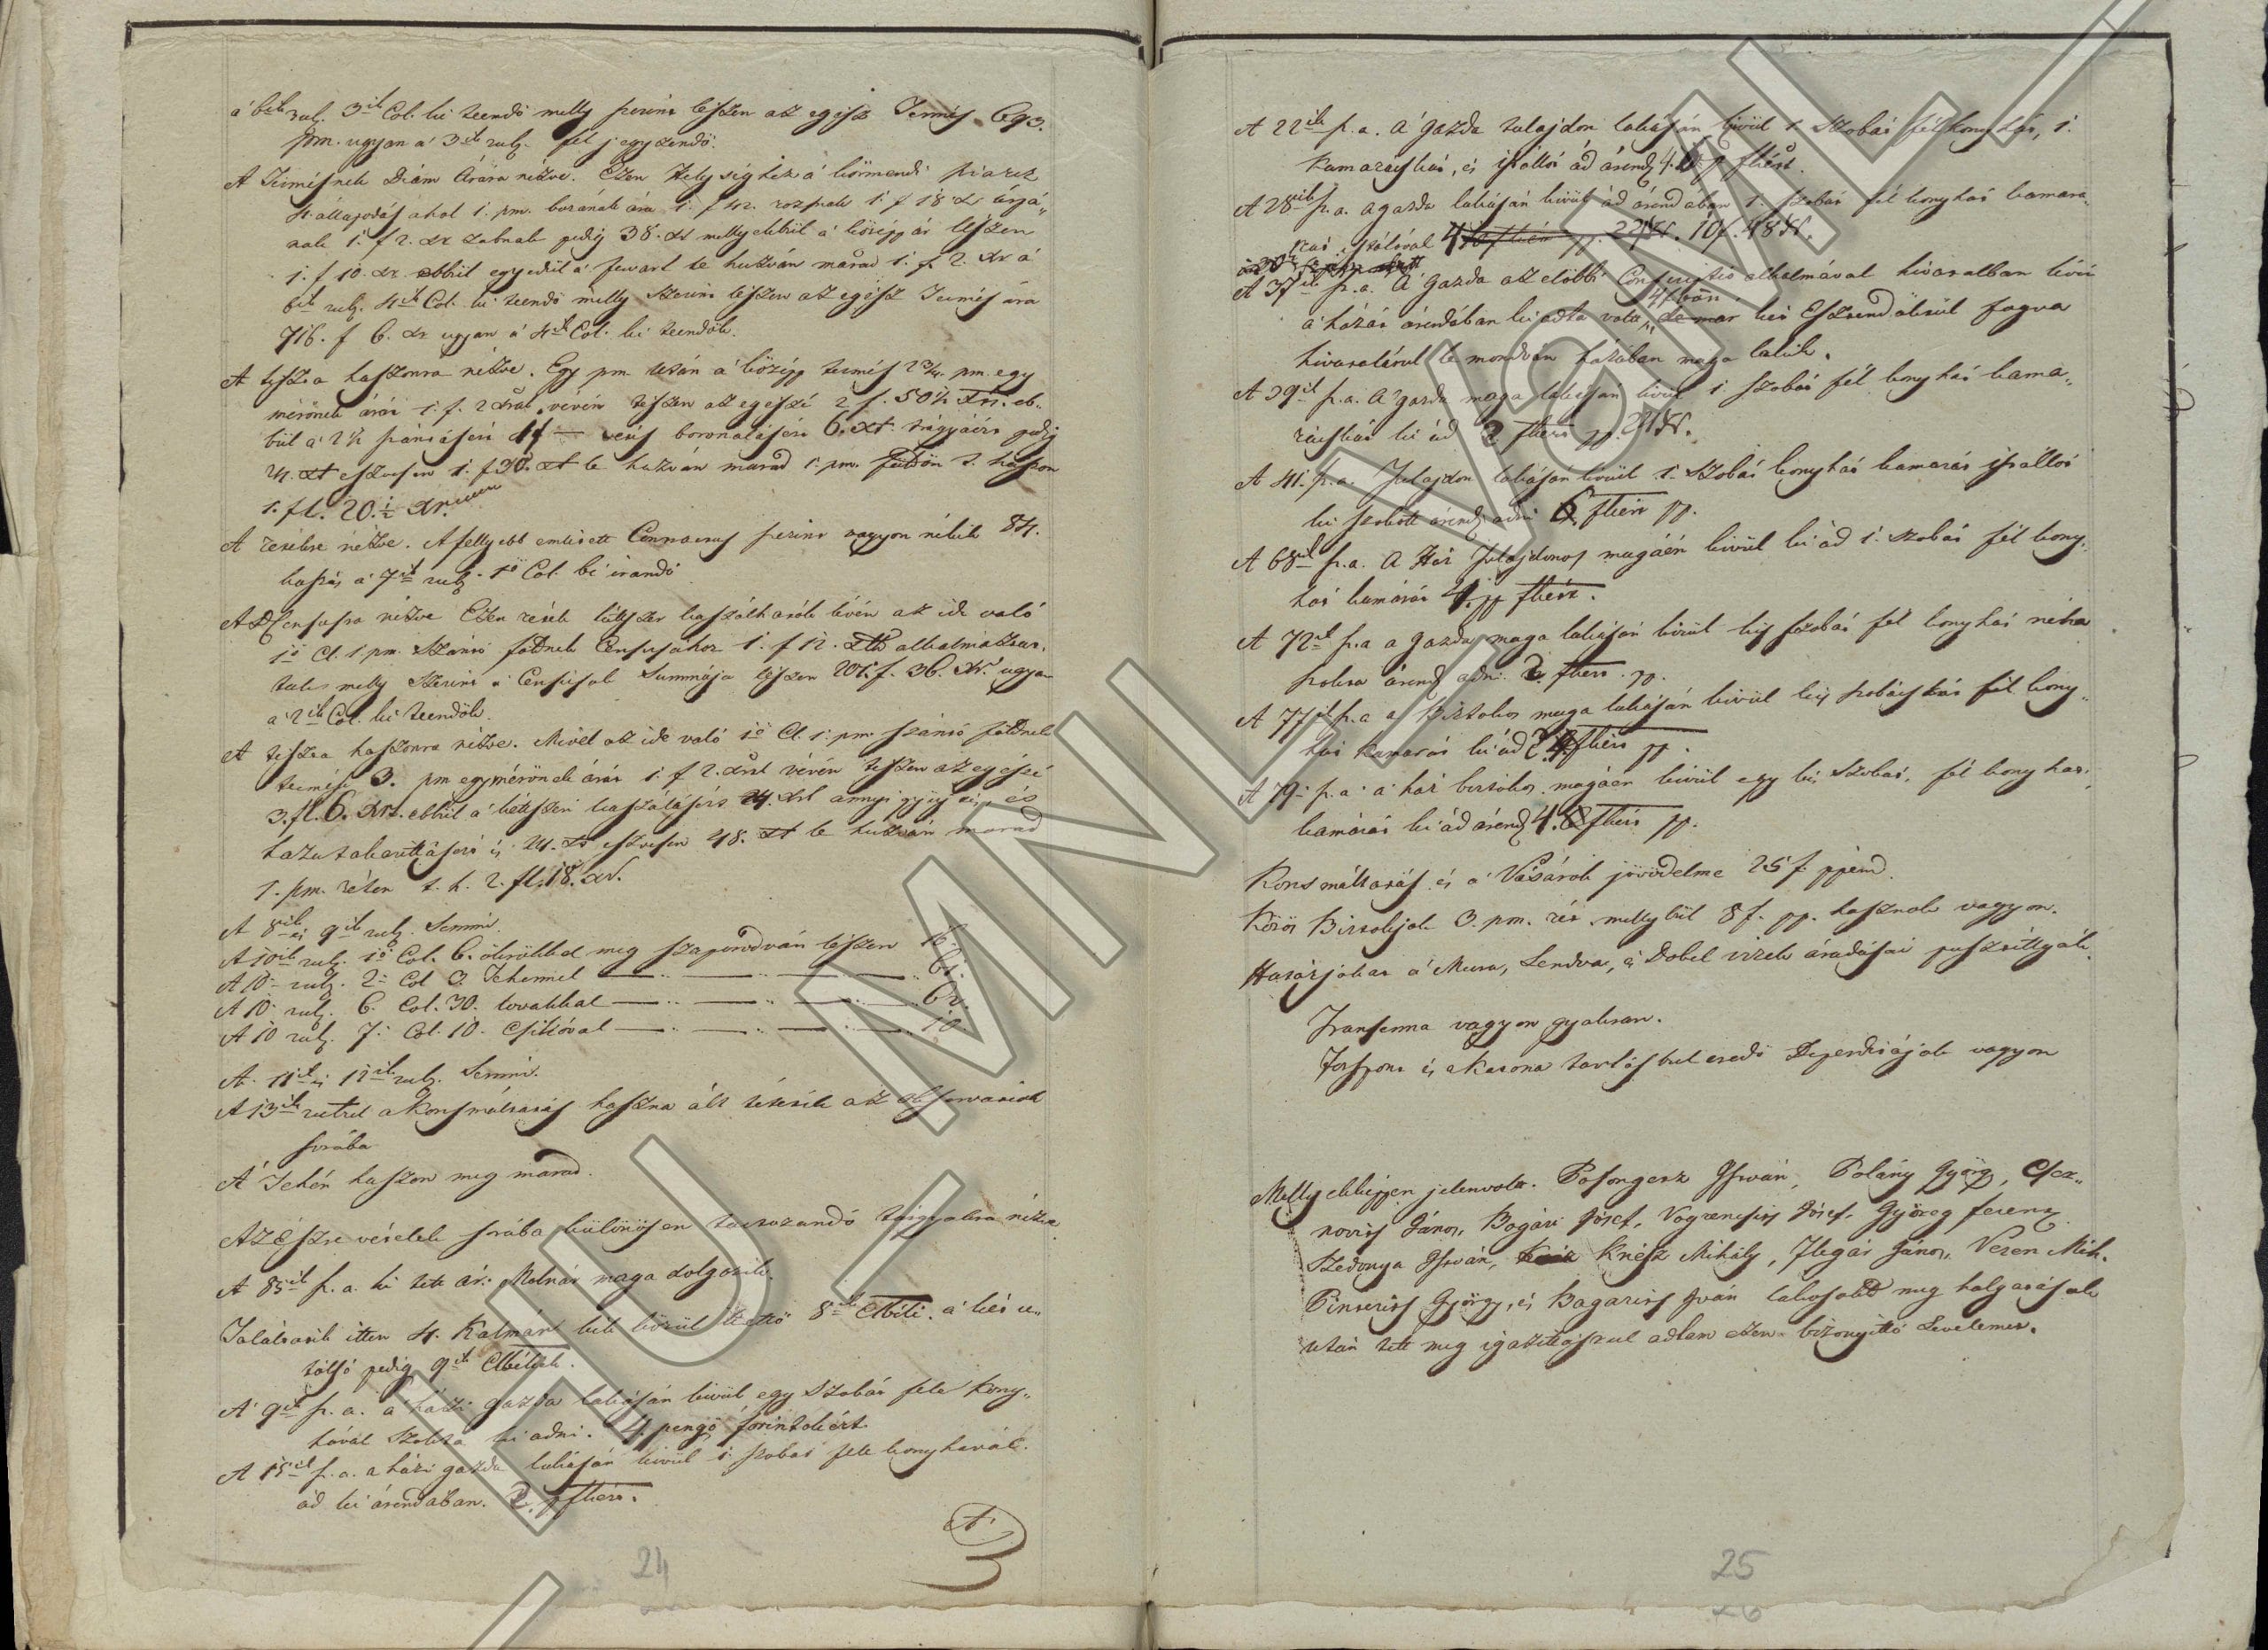 a' 6ik rub. 3ik Col. ki teendő melly szerint lészen az egész Termés 693.
pm. ugyan a' 3ik rub. fel jegyzendő.
A Termésnek Diám Árára nézve. Ezen Helységhez a' körmendi piarcz
4. állapodás ahol 1. pm. buzának ára 1. f 42. rozsnak 1. f 18 xr árpá„
nak 1. f 2. xr zabnak pedig 38. xr mellyekbül a' közép ár lészen
1. f 10. xr ebbül egyedül a' fuvart le huzván marad 1. f. 2. xr a'
6ik rub. 4ik Col. ki teendő melly szerint lészen az egész Termés ára
716. f 6. xr ugyan a' 4ik Col. ki teendők.
A tiszta haszonra nézve. Egy pm. után a' közép termés 2 3/4. pm. egy
mérőnek árát 1. f. 2 xral vévén tészen az egészé 2 f. 50 1/2 xr. eb„
bül a' 2 1/2 szántásért 1f — vetés boronalásért 6. xt. trágyáért pedig
24. xt eszvesen 1. f 30. xt le huzván marad 1. pm. földön t. haszon
1. fl. 20. 1/2 xr.
A rétekre nézve. A fellyebb emlitett szerint vagyon nékik 84.
kaszás a' 7ik rub. 1ő Col. bé irandó
A Censusra nézve Ezen rétek kétszer kaszálhatók lévén az ide való
1ő Cl. 1 pm. Szántó földnek Censusához 1. f 12. alkalmaztat„
tatik melly szerint a' Censusok Summája lészen 201. f. 36. xr. ugyan
a' 2ik Col. ki teendők.
A tiszta haszonra nézve. Mivel az ide való 1ő Cl. 1. pm. szántó földnek
termése 3. pm egy mérőnek árát 1. f 2. xral vévén tészen az egészé
3. fl. 6. xr. ebbül a' kétszeri kaszálásért 24. xrt annyi gyüjtés, és
haza takarittásért is 24. xt eszvesen 48. xt le huzván marad
1. pm. réten t. h. 2. fl. 18. xr.
A 8ik és 9ik rub. Semmi.
A 10ik rub. 1ő Col. 6. ökrökkel meg szaporodván lészen 16.
A 10 rub. 2 Col 3 Tehennel — — — 61.
A 10 rub. 6. Col. 30. lovakkal — — — 62.
A 10 rub. 7. Col. 10. Csikóval — — — 10.
A 11ik és 12ik rub. Semmi.
A 13ik rubrul a Korsmáltatás haszna ált tétetik az observatiok
sorába
A' Tehén haszon meg marad.
Az Észre vételek sorába különösen tartozandó tárgyakra nézve
A 85ik p. a. ki tett ár: Molnár maga dolgozik.
Találtatik itten 4. Kalmár kik közül 8ik a' két u„
tólsó pedig 9ik
A' 9ik p. a. a' házi gazda lakásján kivül egy Szobát fele kony„
hával szokta ki adni. 4. pengő forintokért.
A 15ik p. a. a házi gazda lakásján kivül 1 szobát fele konyhával
ád ki árendában. 2. pfkért.
A'
24
A 22ik p. a. A' gazda tulajdon lakásján kivül 1 szobát fél konyhás, 1.
Kamarácskát, és istállót ád árend. 4. p. fkért.
A 28ik p. a. a gazda lakásján kivül ád árendában 1. szobát fél konyhát kamará„
zat istálóval 4 pp. 22 Xr. 10 f. 48 Xr.
A 37ik p. a. A' gazda az előbbi Conscriptio alkalmával hivatalban lévén
4 fban
a' házát árendában ki adta volt, de már két Esztendőktül fogva
hivatalárul le mondván házában maga lakik.
A 39ik p. a. A' gazda maga lakásján kivül 1 szobát fél konyhát kama„
rácskát ki ád 2 fkért pp. 21 Xr.
A 41. p. a. Tulajdon lakásján kivül 1. Szobát konyhát kamarát istállót
ki szokott árend. adni 6 fkért pp.
A 68ik p. a. A Ház Tulajdonos magáén kivül ki ád 1. szobát fél kony„
hát kamarát 4. pp fkért.
A 72ik p. a a gazda maga lakásján kivül kis szobát fél konyhát néha
szokta árend. adni 2. fkért. pp.
A 77ik p. a a birtokos maga lakásján kivül kis szobácskát fél kony„
hát kamarát ki ád 4. fkért pp.
A 79ik p. a. a' ház birtokos magáén kivül egy kis szobát, fél konyhát,
kamarát ki ád árend. 4. fkért pp.
Korsmáltatás és a' Vásárok jövödelme 25 f. ppénd.
Közös Birtokjok 3. pm. rét mellybül 8 f. pp. hasznok vagyon.
Határjokat a' Mura, Lendva, és Dobel vizek áradásai pusztittyák.
Transenna vagyon gyakran.
Forspont és Katona tartásbul eredő Deperditájok vagyon
Mellyekképpen jelenvolt. Posongerz Istvány, Polány György, Csez„
novits János, Bagári Jósef, Vogrencsits Jósef, Györeg Ferenz
Szedonya Istvány, Knész Mihály, Flegár János, Veren Mih.
Pinterits György, és Bagarits Iván lakosok meg halgatások
után tett meg igazittásrul adtam ezen bizonyitó Levelemet.
25